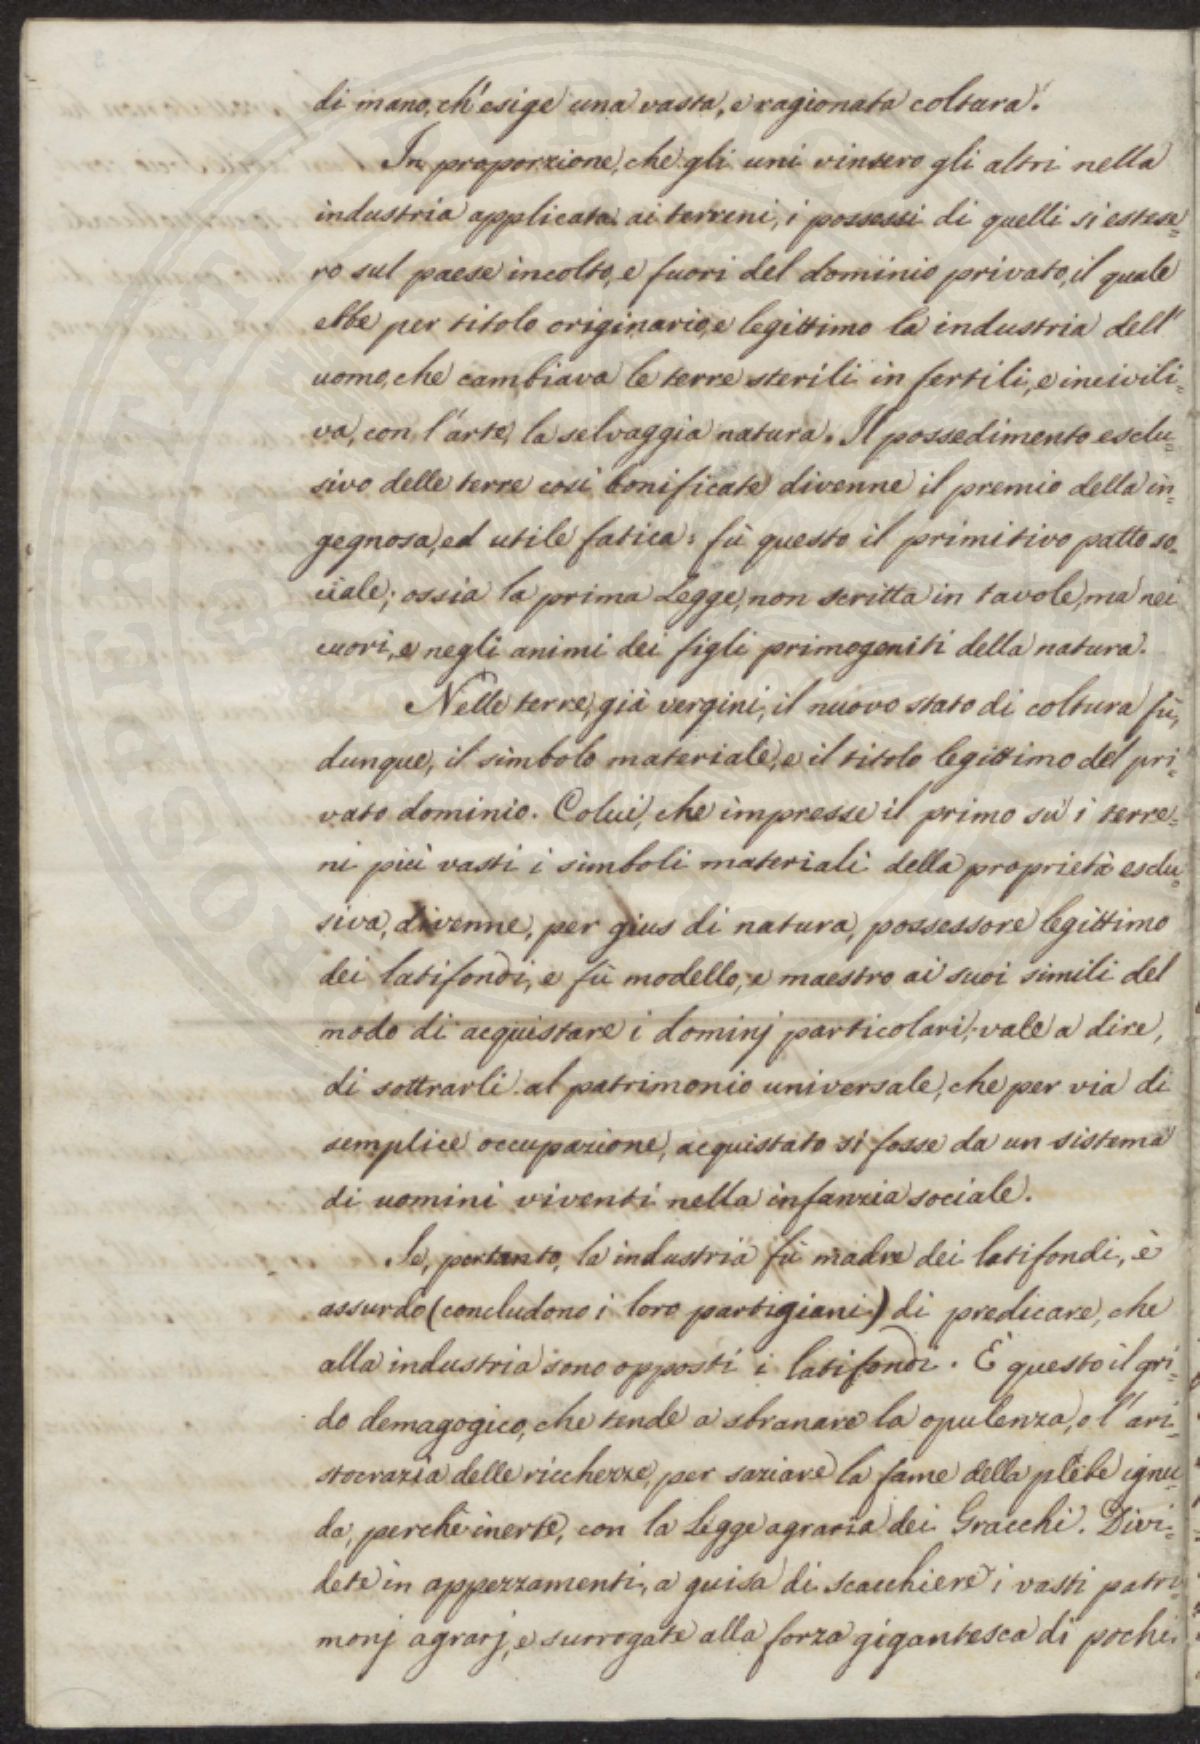 di mano, ch'esige una vasta, e ragionata coltura.
In proporzione, che gli uni vinsero gli altri nella
industria applicata ai terreni, i possessi di quelli si estese=
ro sul paese incolto, e fuori del dominio privato, il quale
ebbe per titolo originario, e legittimo la industria dell'
uomo, che cambiava le terre sterili in fertili, e incivili=
va, con l'arte, la selvaggia natura. Il possedimento esclu=
sivo delle terre così bonificate divenne il premio della in=
gegnosa, ed utile fatica: fù questo il primitivo patto so=
ciale; ossia la prima Legge, non scritta in tavole, ma nei
cuori, e negli animi dei figli primogeniti della natura.
Nelle terre, già vergini, il nuovo stato di coltura fù,
dunque, il simbolo materiale, e il titolo legittimo del pri=
vato dominio. Colui, che impresse il primo sù i terre=
ni più vasti i simboli materiali della proprietà esclu=
siva, divenne, per gius di natura, possessore legittimo
dei latifondi, e fù modello, e maestro ai suoi simili del
modo di acquistare i dominj particolari, vale a dire,
di sottrarli al patrimonio universale, che per via di
semplice occupazione, acquistato si fosse da un sistema
di uomini viventi nella infanzia sociale.
Se, pertanto, la industria fù madre dei latifondi, è
assurdo (concludono i loro partigiani) di predicare, che
alla industria sono opposti i latifondi. È questo il gri=
do demagogico, che tende a sbranare la opulenza, o l'ari=
stocrazia delle ricchezze, per saziare la fame della plebe ignu=
da, perchè inerte, con la Legge agraria dei Gracchi. Divi=
dete in appezzamenti, a guisa di scacchiere i vasti patri=
monj agrarj, e surrogate alla forza gigantesca di pochi
PROSPERITATI PUBLICAE